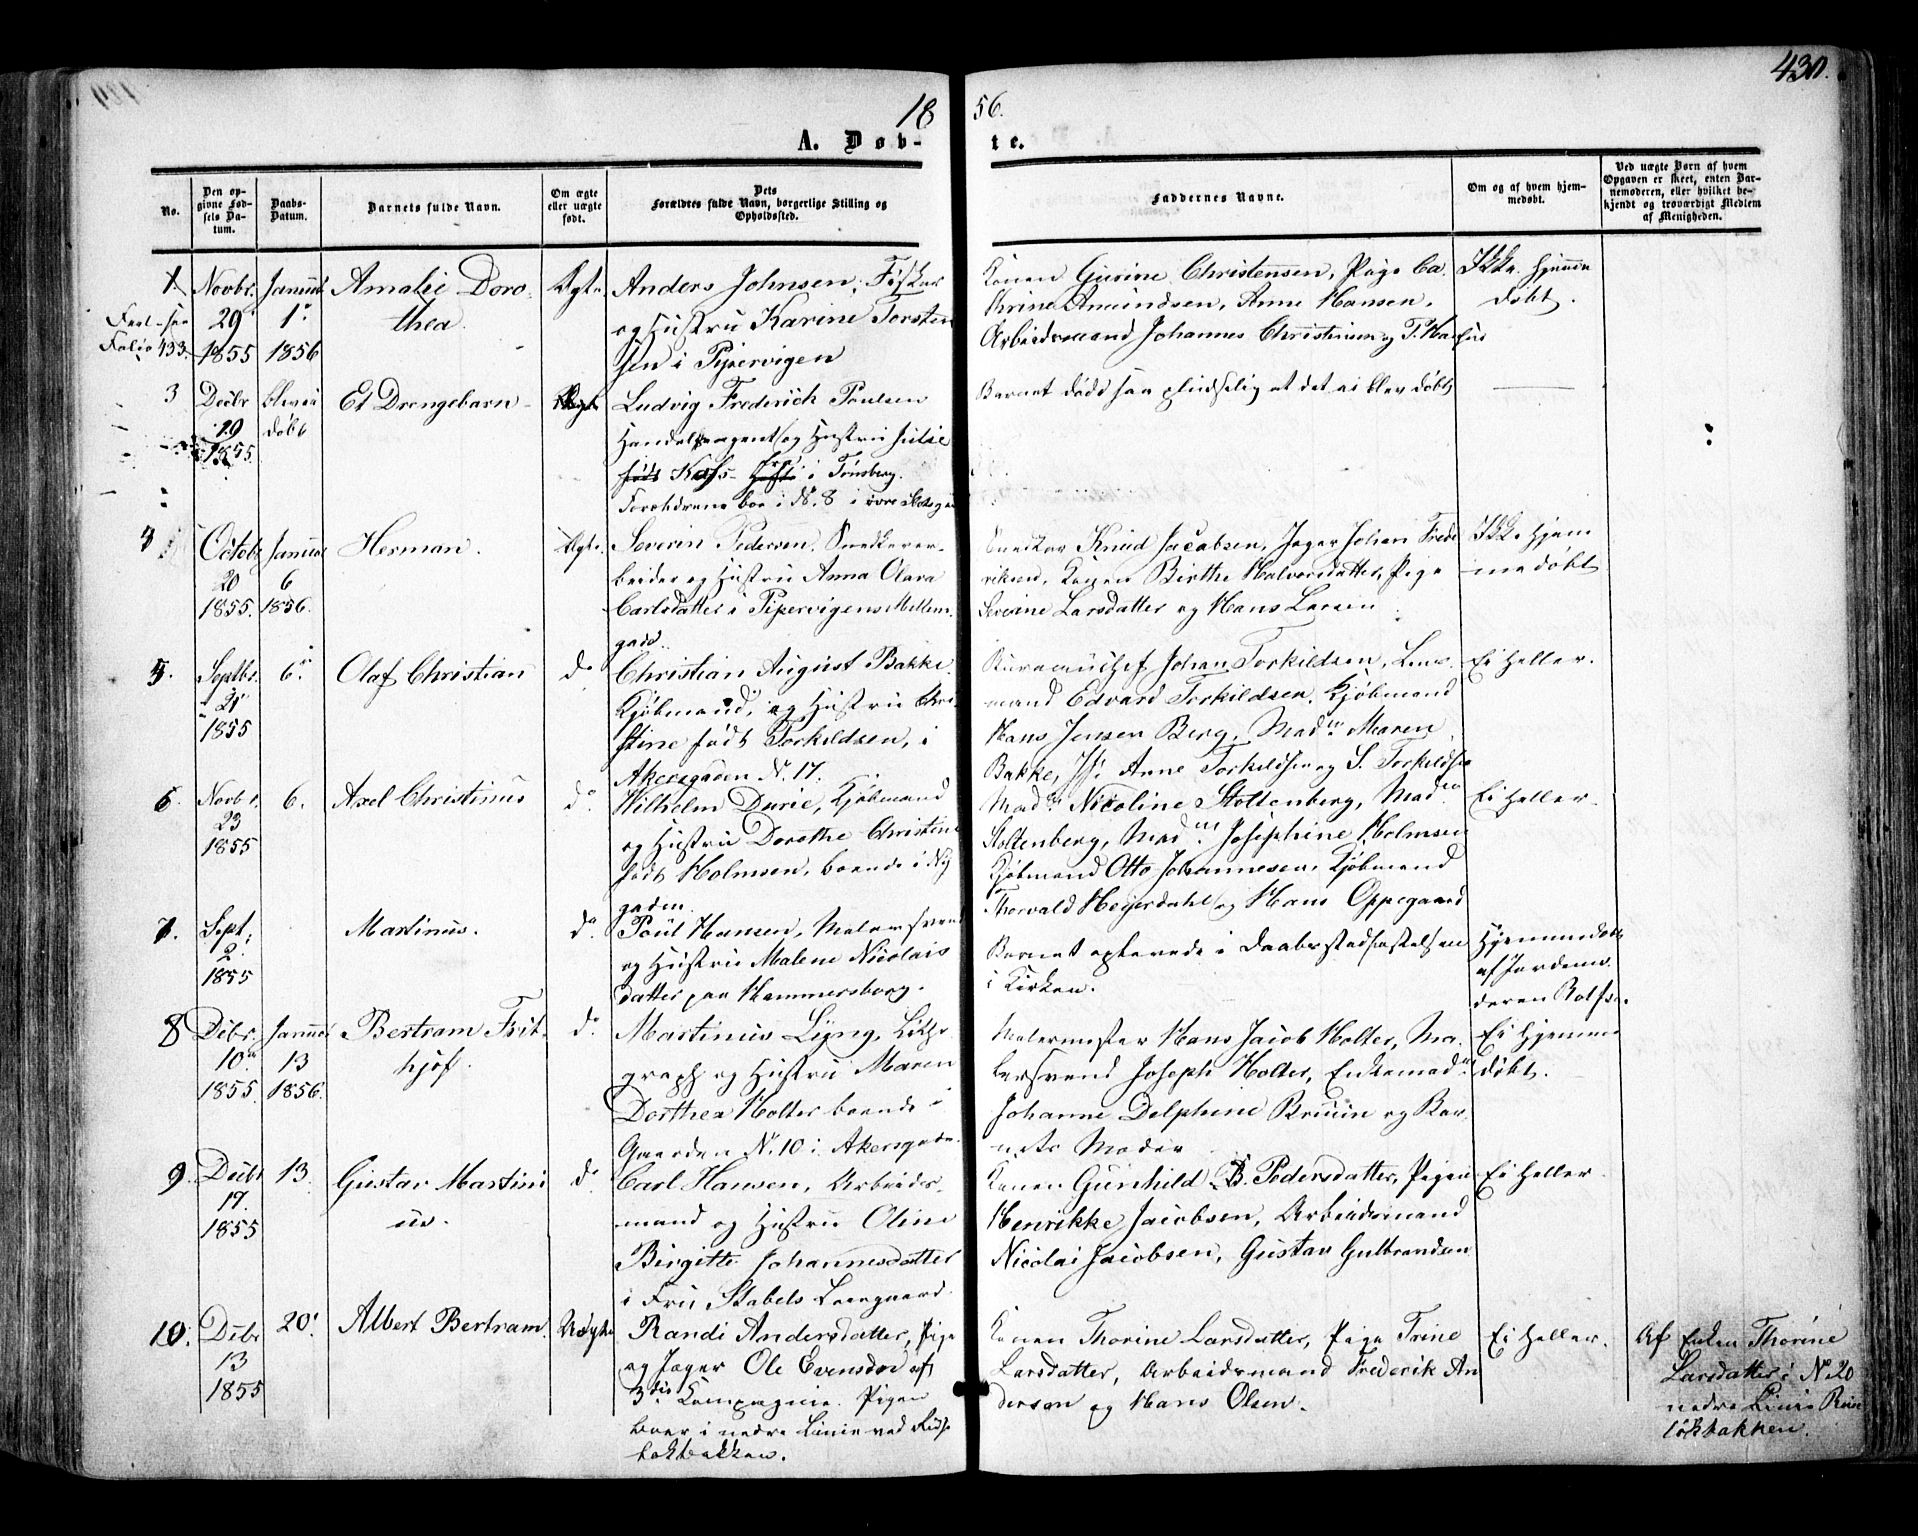 430.
18 56.
A. Døb- te.
No.
Den opgivne Fødsels Datum.
Daabs-Datum.
Barnets fulde Navn.
Om ægte eller uægte født.
Dets Forældres fulde Navn, borgerlige Stilling og Opholdssted.
Faddernes Navne.
Om og af hvem hjemmedøbt.
Ved uægte Børn af hvem Opgaven er skeet, enten Barnemoderen, eller hvilket bekjendt og troværdigt Medlem af Menigheden.
1
Novbr. 29 1855
Januar 1. 1856
Folio 433.
Amalie Doro-
thea
Ægte
Anders Johnsen, Fisker
og Hustru Karine Torsten
sen i Pipervigen
Konen Gurine Christensen, Pige Ca
thrine Amundsen, Anne Hansen,
Arbeidsmand Johannes Christensen og T. Hansen
Ikke hjemme
døbt.
3
Decbr 19 1855.
blev ei døbt
Et Drengebarn
Ægte
Ludvig Frederich Poulsen
Handelsagent og Hustru Julie
født i Tønsberg.
Forældrene boe i No. 8 i
Barnet døde saa pludselig at det ei blev døbt
Octobr 20 1855.
Januar 6 1856.
Herman.
Ægte.
Severin Pedersen, Snedkerar-
beider og Hustru Anna Olava
Carlsdatter i Pipervigens Mellem
gade.
Snedker Knud Jacobsen, Jæger Johan Frede
riksen, Konen Birthe Halvorsdatter, Pige
Severine Larsdatter og Hans Larsen
Ikke hjem
medøbt
5.
Septbr. 21 1855
6.
Olaf Christian
do
Christian August Bakke
Kjøbmand, og Hustru Chri-
stine født Torkildsen, i
Akersgaden N. 17.
Johan Torkildsen, Lens-
mand Edvard Torkildsen, Kjøbmand
Hans Jensen Berg, Madm Maren
Bakke, Jfr Anne Torkildsen og S. Torkildsen
Ei heller.
6.
Novbr. 23 1855
6.
Axel Christinus
do
Wilhelm Durie, Kjøbmand
og Hustru Dorothe Christine
født Holmsen, boende i Ny
gaden.
Madm Nicoline Stoltenberg, Madm
Stoltenberg, Madm Josephine Holmsen
Kjøbmand Otto Johannesen, Kjøbmand
Thorvald Heyerdahl og Hans Oppegaard
Ei heller.
7.
Sept. 2. 1855
Martinus.
do.
Poul Hansen, Malersvend
og Hustru Malene Nicolais
datter paa Hammersborg.
Barnet opterede i Daabsstadfæstelsen
i Kirken.
Hjemmedøbt
af Jordemo-
deren Rolfsen.
8
Dcbr. 10 1855.
Januar 13 1856.
Bertram Frit-
hjof.
do
Martinus Lyng, Litho
graph og Hustru Maren
Dorthea Holter boende i
Gaarden No. 10 i Akersgaden.
Malermester Hans Jacob Holter, Ma-
lersvend Joseph Holter, Enkemadm
Johanne Delphine Bruun og Bar
nets Moder
Ei hjemme
døbt.
9.
Decbr 17. 1855
13.
Gustav Martini
us.
do
Carl Hansen, Arbeids-
mand og Hustru Oline
Birgitte Johannesdatter
i Fru Stabels Løegaard.
Konen Gunhild B. Pedersdatter, Pigen
Henrikke Jacobsen, Arbeidsmand
Nicolai Jacobsen, Gustav Gulbrandsen
Ei heller.
10.
Dcbr 13 1855
20.
Albert Bertram.
Uægte
Randi Andersdatter, Pige
og Jæger Ole Evensen af
3die Kompagnie. Pigen
boer i nedre Linie ved Ruse
løkbakken.
Konen Thorine Larsdatter, Pige Trine
Larsdatter, Arbeidsmand Frederik An
dersen og Hans Olsen.
Ei heller.
Af Enken Thorine
Larsdatter i No 20
nedre Linie Ruse
løkbakken.